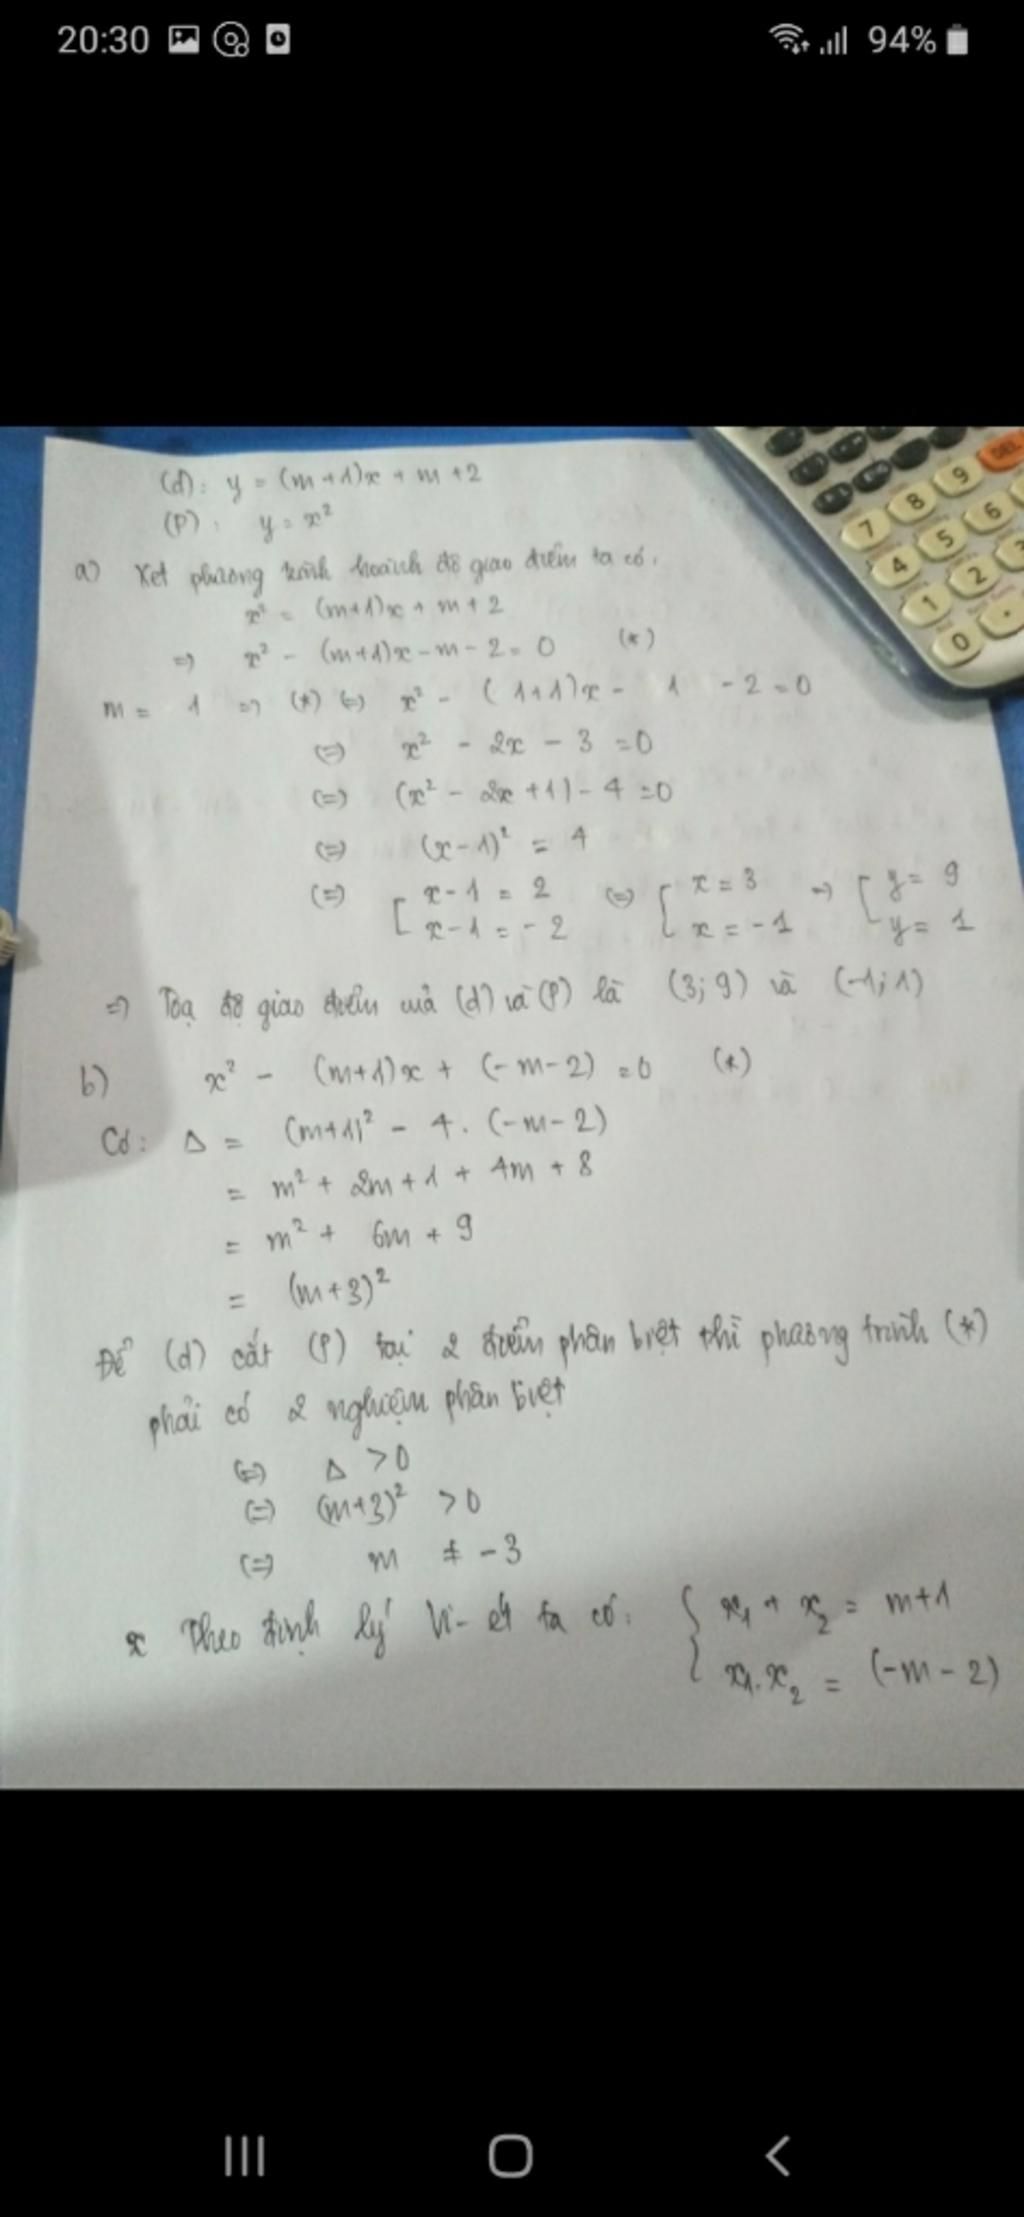 20:30
94%
(d): y = (m+1)x + m + 2
(P): y = x²
a) Xét phương trình hoành độ giao điểm ta có:
x² = (m+1)x + m + 2
=> x² - (m+1)x - m - 2 = 0 (*)
m = 1 => (*) (=) x² - (1+1)x - 1 - 2 = 0
(=) x² - 2x - 3 = 0
(=) (x² - 2x + 1) - 4 = 0
(=) (x - 1)² = 4
(=) [ x - 1 = 2 (=) [ x = 3 => [ y = 9
x - 1 = - 2 x = - 1 y = 1
=> Toạ độ giao điểm của (d) và (P) là (3; 9) và (-1; 1)
b) x² - (m+1)x + (-m-2) = 0 (*)
Có: Δ = (m+1)² - 4. (-m-2)
= m² + 2m + 1 + 4m + 8
= m² + 6m + 9
= (m+3)²
Để (d) cắt (P) tại 2 điểm phân biệt thì phương trình (*)
phải có 2 nghiệm phân biệt
(=) Δ > 0
(=) (m+3)² > 0
(=) m ≠ - 3
x Theo định lý Vi-ét ta có: { x₁ + x₂ = m+1
x₁.x₂ = (-m - 2)
DEL
7 8 9
4 5 6
1 2 3
0 .